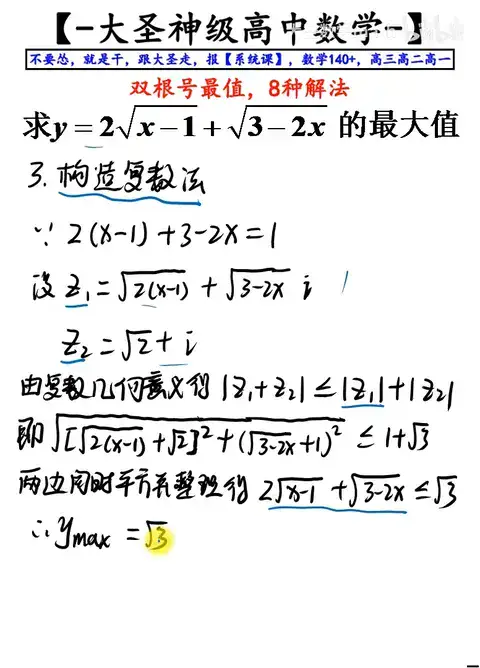 【-大圣神级高中数学-】
不要怂，就是干，跟大圣走，报【系统课】，数学140+，高三高二高一
双根号最值，8种解法
求y=2√(x-1)+√(3-2x) 的最大值
3. 构造复数法
∵ 2(x-1)+3-2x=1
设 z₁=√(2(x-1))+√(3-2x) i
z₂=√2+i
由复数几何意义得 |z₁+z₂|≤|z₁|+|z₂|
即√([√(2(x-1))+√2]²+(√(3-2x)+1)²) ≤1+√3
两边同时平方并整理得 2√(x-1)+√(3-2x)≤√3
∴ymax=√3